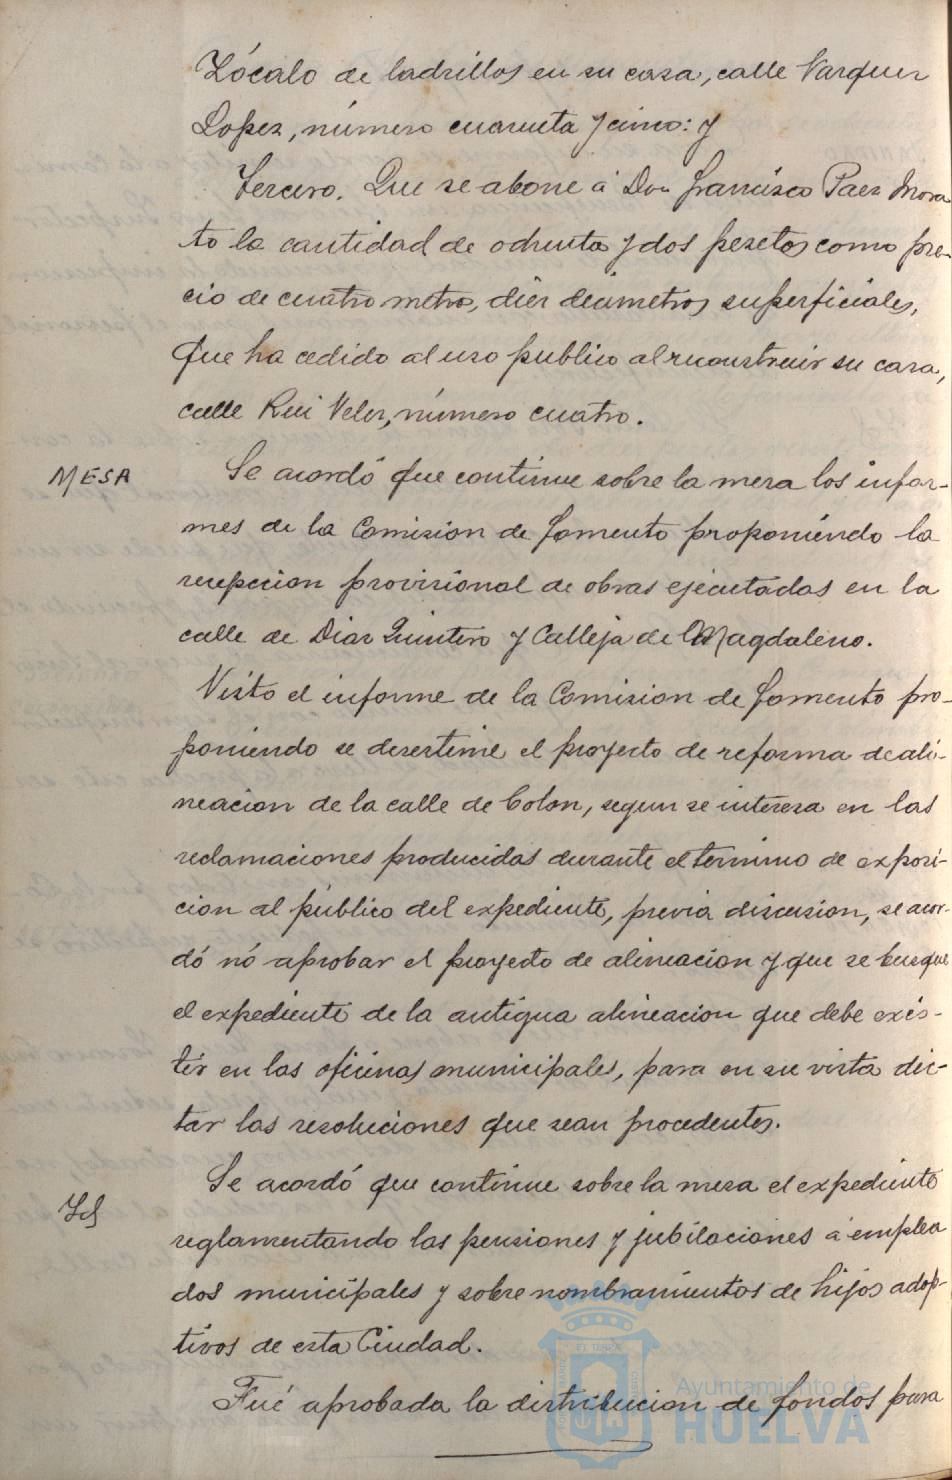 Zócalo de ladrillos en su casa, calle Vazquez
Lopez, número cuarenta y cinco: y
Tercero. Que se abone á Don Francisco Paez Mora
to la cantidad de ochenta y dos pesetas como pre-
cio de cuatro metros, diez decimetros superficiales,
que ha cedido al uso publico al reconstruir su casa,
calle Rui Velez, número cuatro.
MESA
Se acordó que continue sobre la mesa los infor-
mes de la Comision de Fomento proponiendo la
recepcion provisional de obras ejecutadas en la
calle de Diaz Quintero y Calleja de Magdaleno.
Visto el informe de la Comision de Fomento pro-
poniendo se desestime el proyecto de reforma de ali-
neacion de la calle de Colon, segun se interesa en las
reclamaciones producidas durante el termino de exposi-
cion al público del expediente, previa discusion, se acor-
dó nó aprobar el proyecto de alineacion y que se busque
el expediente de la antigua alineacion que debe exis-
tir en las oficinas municipales, para en su vista dic-
tar las resoluciones que sean procedentes.
Id
Se acordó que continue sobre la mesa el expediente
reglamentando las pensiones y jubilaciones á emplea
dos municipales y sobre nombramientos de hijos adop-
tivos de esta Ciudad.
Fué aprobada la distribucion de fondos para
Ayuntamiento de
HUELVA